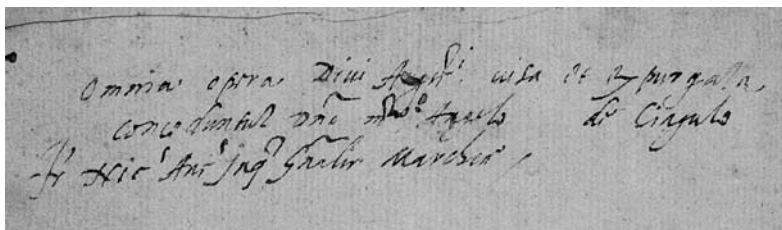 Omnia opera Diui Augti. uisa et expurgata,
conceduntur Angelo de Cingulo
Fr Nics Ants Inqr Gnalis Marchiæ,